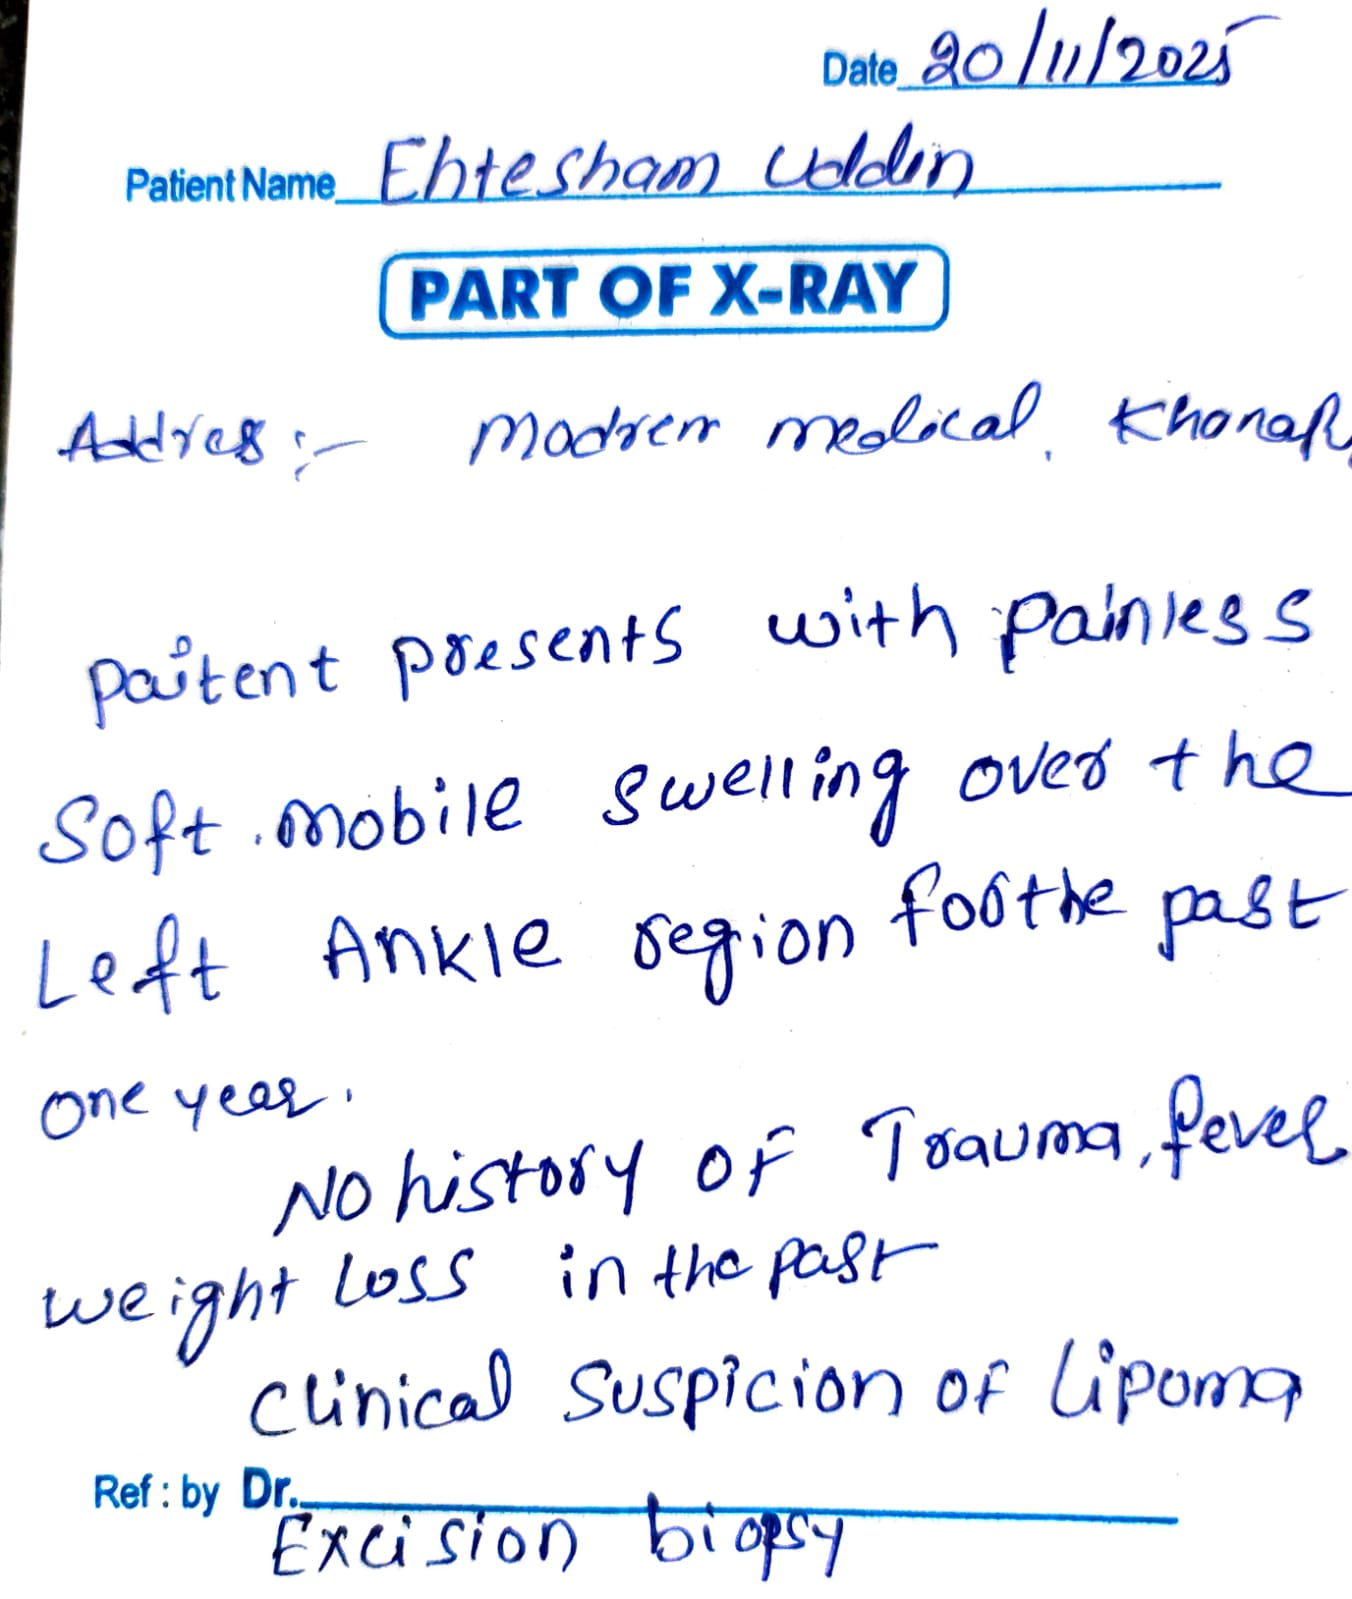 Date 20/11/2025
Patient Name Ehtesham Uddin
PART OF X-RAY
Addres :- Modren medical, Khanap
paitent presents with painless
Soft mobile swelling over the
Left Ankle region for the past
one year.
No history of Trauma, fever
weight loss in the past
Clinical suspicion of Lipoma
Ref : by Dr.
Excision biopsy